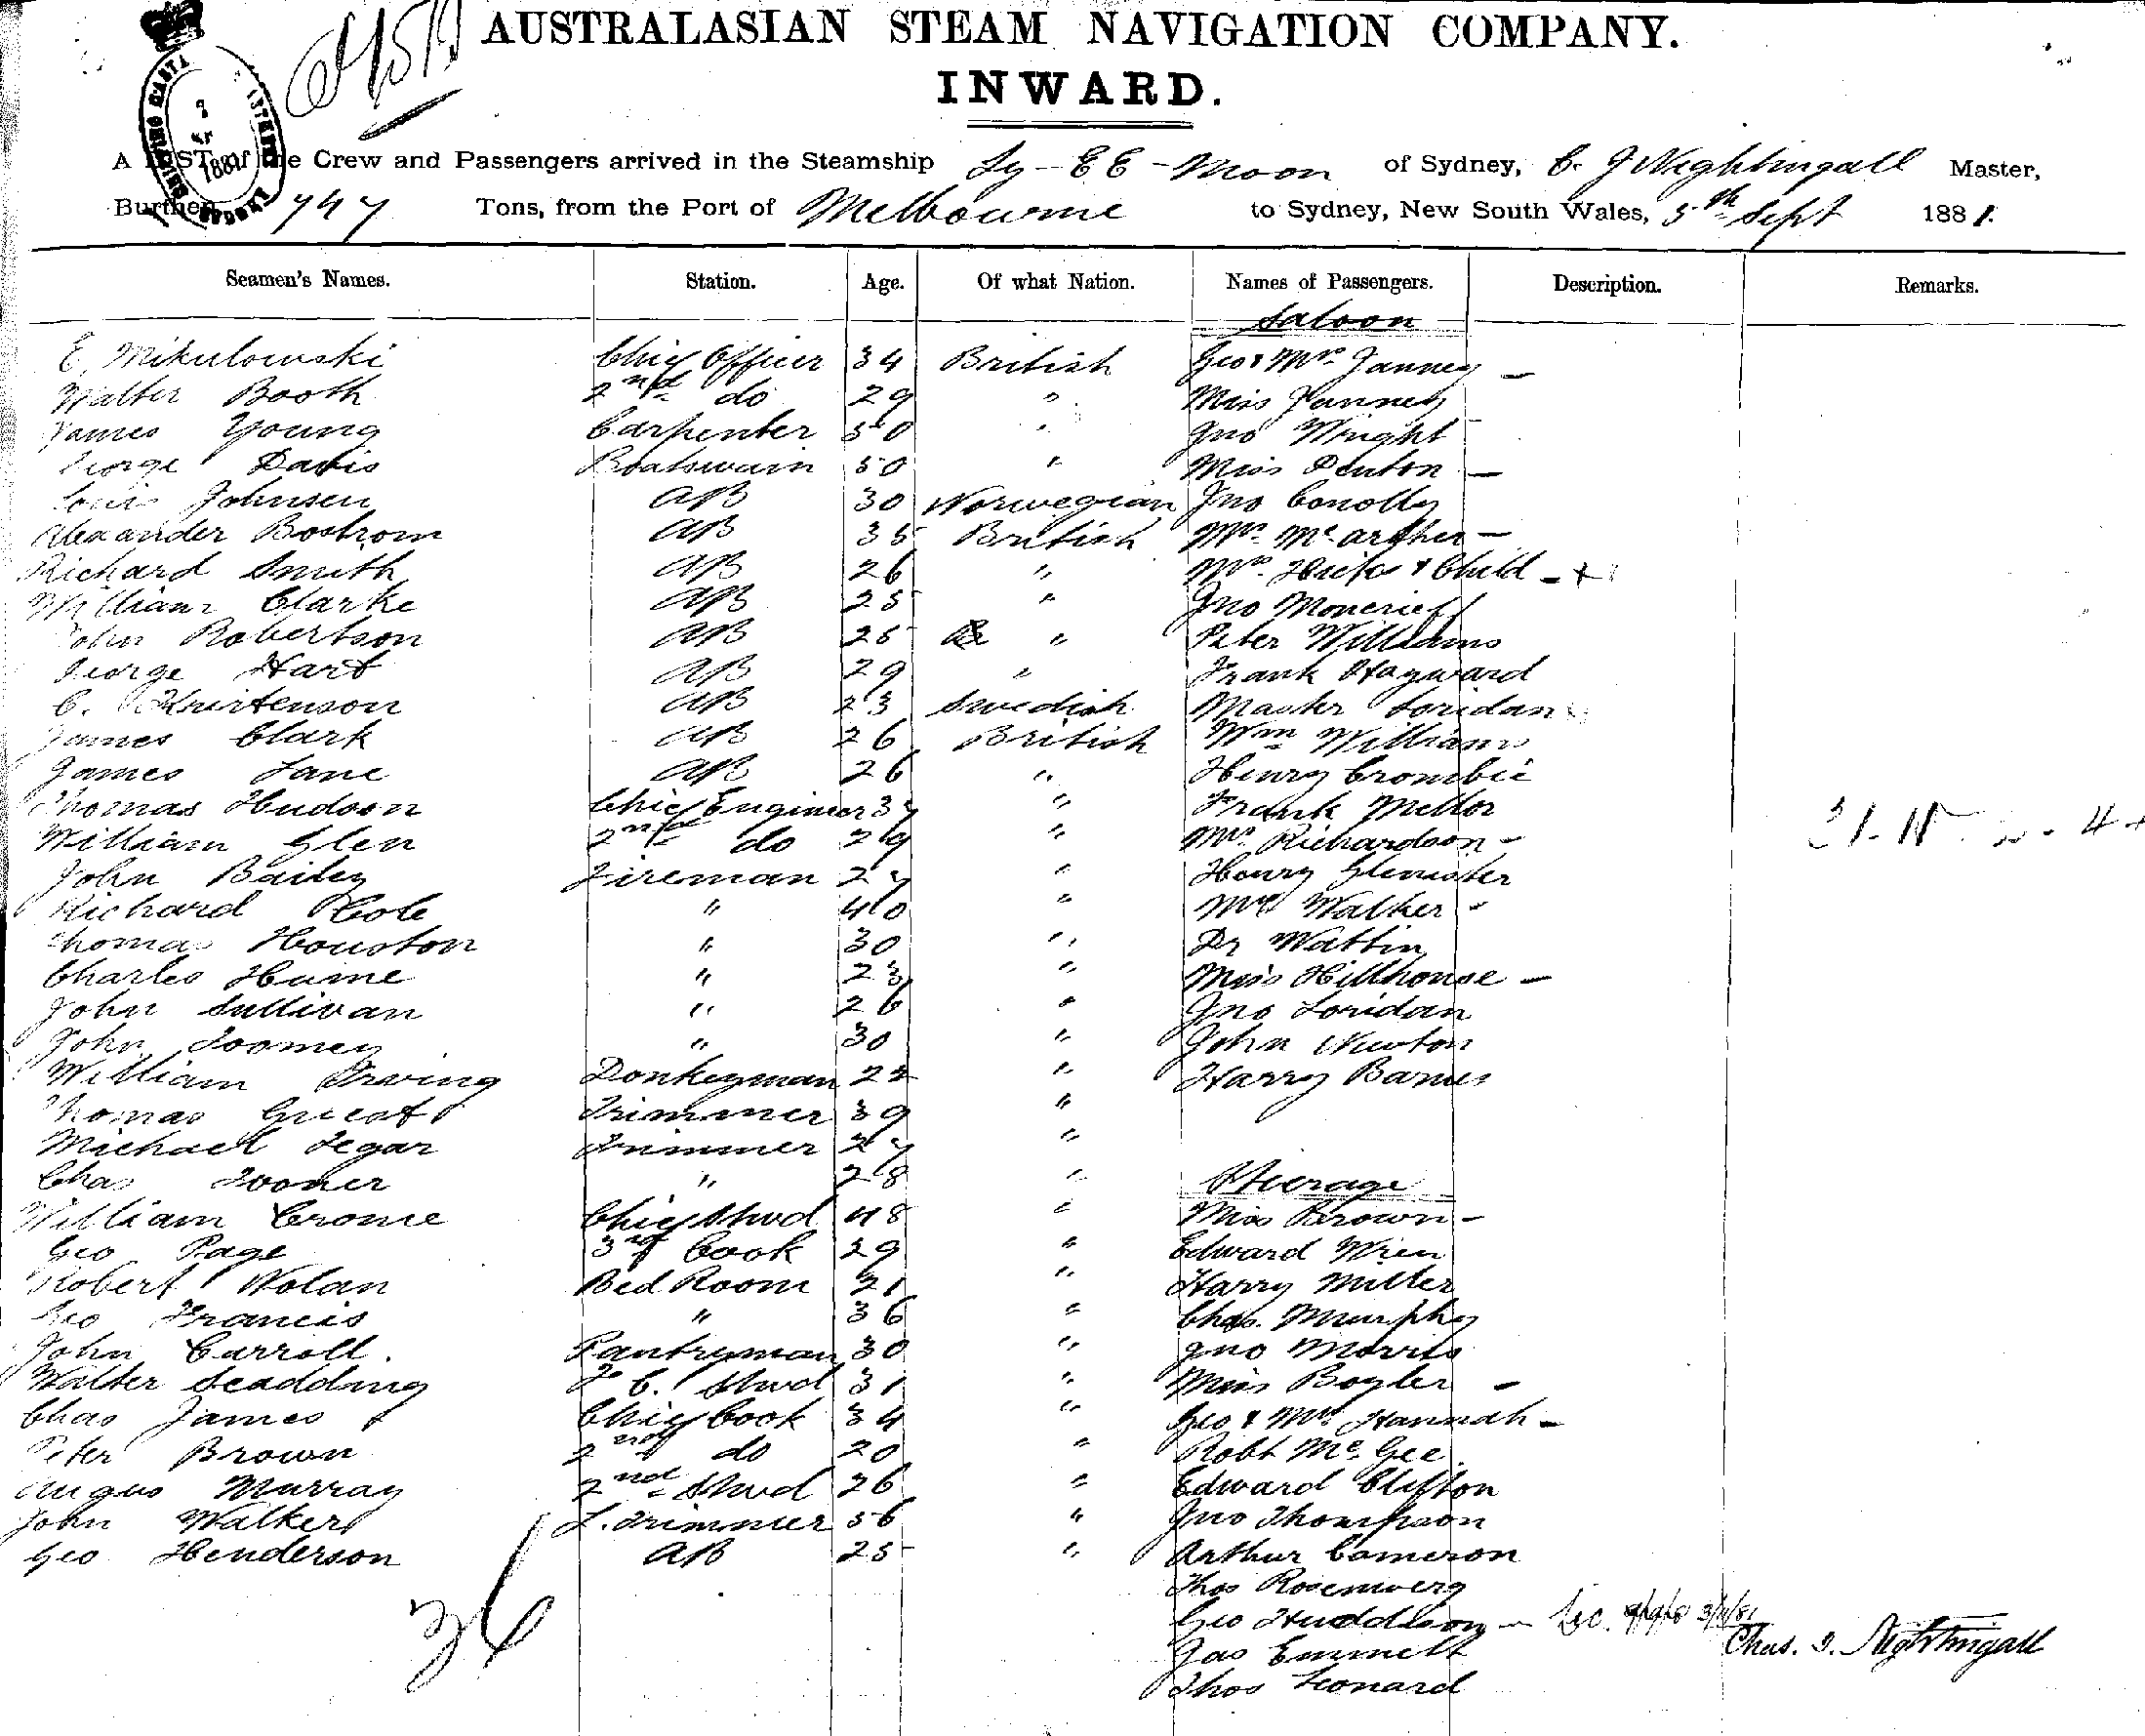 AUSTRALASIAN STEAM NAVIGATION COMPANY.
INWARD.
A LIST of the Crew and Passengers arrived in the Steamship Ly-EE-Moon of Sydney, C. J Nightingall Master,
Burthen 747 Tons, from the Port of Melbourne to Sydney, New South Wales, 5th Sept 1881.
Seamen's Names. Station. Age. Of what Nation. Names of Passengers. Description. Remarks.
Saloon
E. Mikulowski Chief Officer 34 British Geo & Mrs
Walter Booth 2nd do 29 " Miss
James Young Carpenter 50 " Jno Wright
George Davis Boatswain 50 " Miss Denton —
Louis Johnsen AB 30 Norwegian Jno Conolly
Alexander Bostrom AB 35 British Mrs McArther —
Richard Smith AB 26 " Mrs Hicks & Child — +
William Clarke AB 25 " Jno Moncrieff
John Robertson AB 25 " Peter Williams
George Hart AB 29 " Frank Hayward
C. Kristenson AB 23 Swedish Master Loridan
James Clark AB 26 British Wm Williams
James Lane AB 26 " Henry Crombie
Thomas Hudson Chief Engineer 37 " Frank Mellor
William Glen 2nd do 29 " Mrs Richardson -
John Bailey Fireman 27 " Henry Glenister
Richard Cole " 40 " Walker -
Thomas Houston " 30 " Dr Wattin
Charles Hume " 23 " Miss Hillhouse —
John Sullivan " 26 " Jno Loridan
John Toomey " 30 " John Newton
William Irving Donkeyman 22 " Harry Barnes
Thomas Trimmer 39 "
Michael Segar Trimmer 27 "
Chas Tooner " 28 " Steerage
William Crome Chief Stwd 48 " Miss Brown -
Geo Page 3rd Cook 29 " Edward Wren
Robert Nolan Bed Room 21 " Harry Miller
Geo Francis " 36 " Chas. Murphy
John Carroll. Pantryman 30 " Jno Morris
Walter Scadding C. Stwd 31 " Miss —
Chas James Chief Cook 34 " Geo & Mrs Hannah —
Peter Brown 2nd do 20 " Robt McGee
Angus Murray 2nd Stwd 26 " Edward Clifton
John Walker L. Trimmer 56 " Jno Thompson
Geo Henderson AB 25 " Arthur Cameron
Thos
36
Geo
Chas. J. Nightingall
Jas Emmett
Thos Leonard